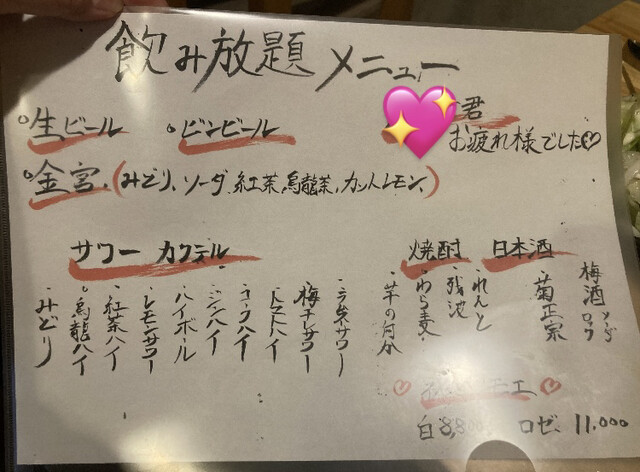 飲み放題メニュー
君
お疲れ様でした♡
生ビール
ビンビール
金宮(みどり、ソーダ、紅茶、烏龍茶、カットレモン、)
サワー カクテル
・みどり
・烏龍ハイ
・紅茶ハイ
・レモンサワー
・ハイボール
・ジンハイ
・コークハイ
・トマトハイ
・梅干しサワー
・ラムネサワー
焼酎
・芋の何か
・わら麦
・残波
・れんと
日本酒
・菊正宗
梅酒 ソーダ ロック
白 8,8 ロゼ 11.000